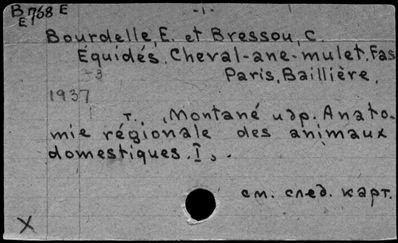 В768 Е -1-
Е
Bourdelle, E. et Bressou, C.
Équidés. Cheval-ane-mulet. Fas
-3 Paris, Baillière,
1937
т., Montané идр. Anato-
mie régionale des animaux
domestiques. I,.-
см. след. карт.
X